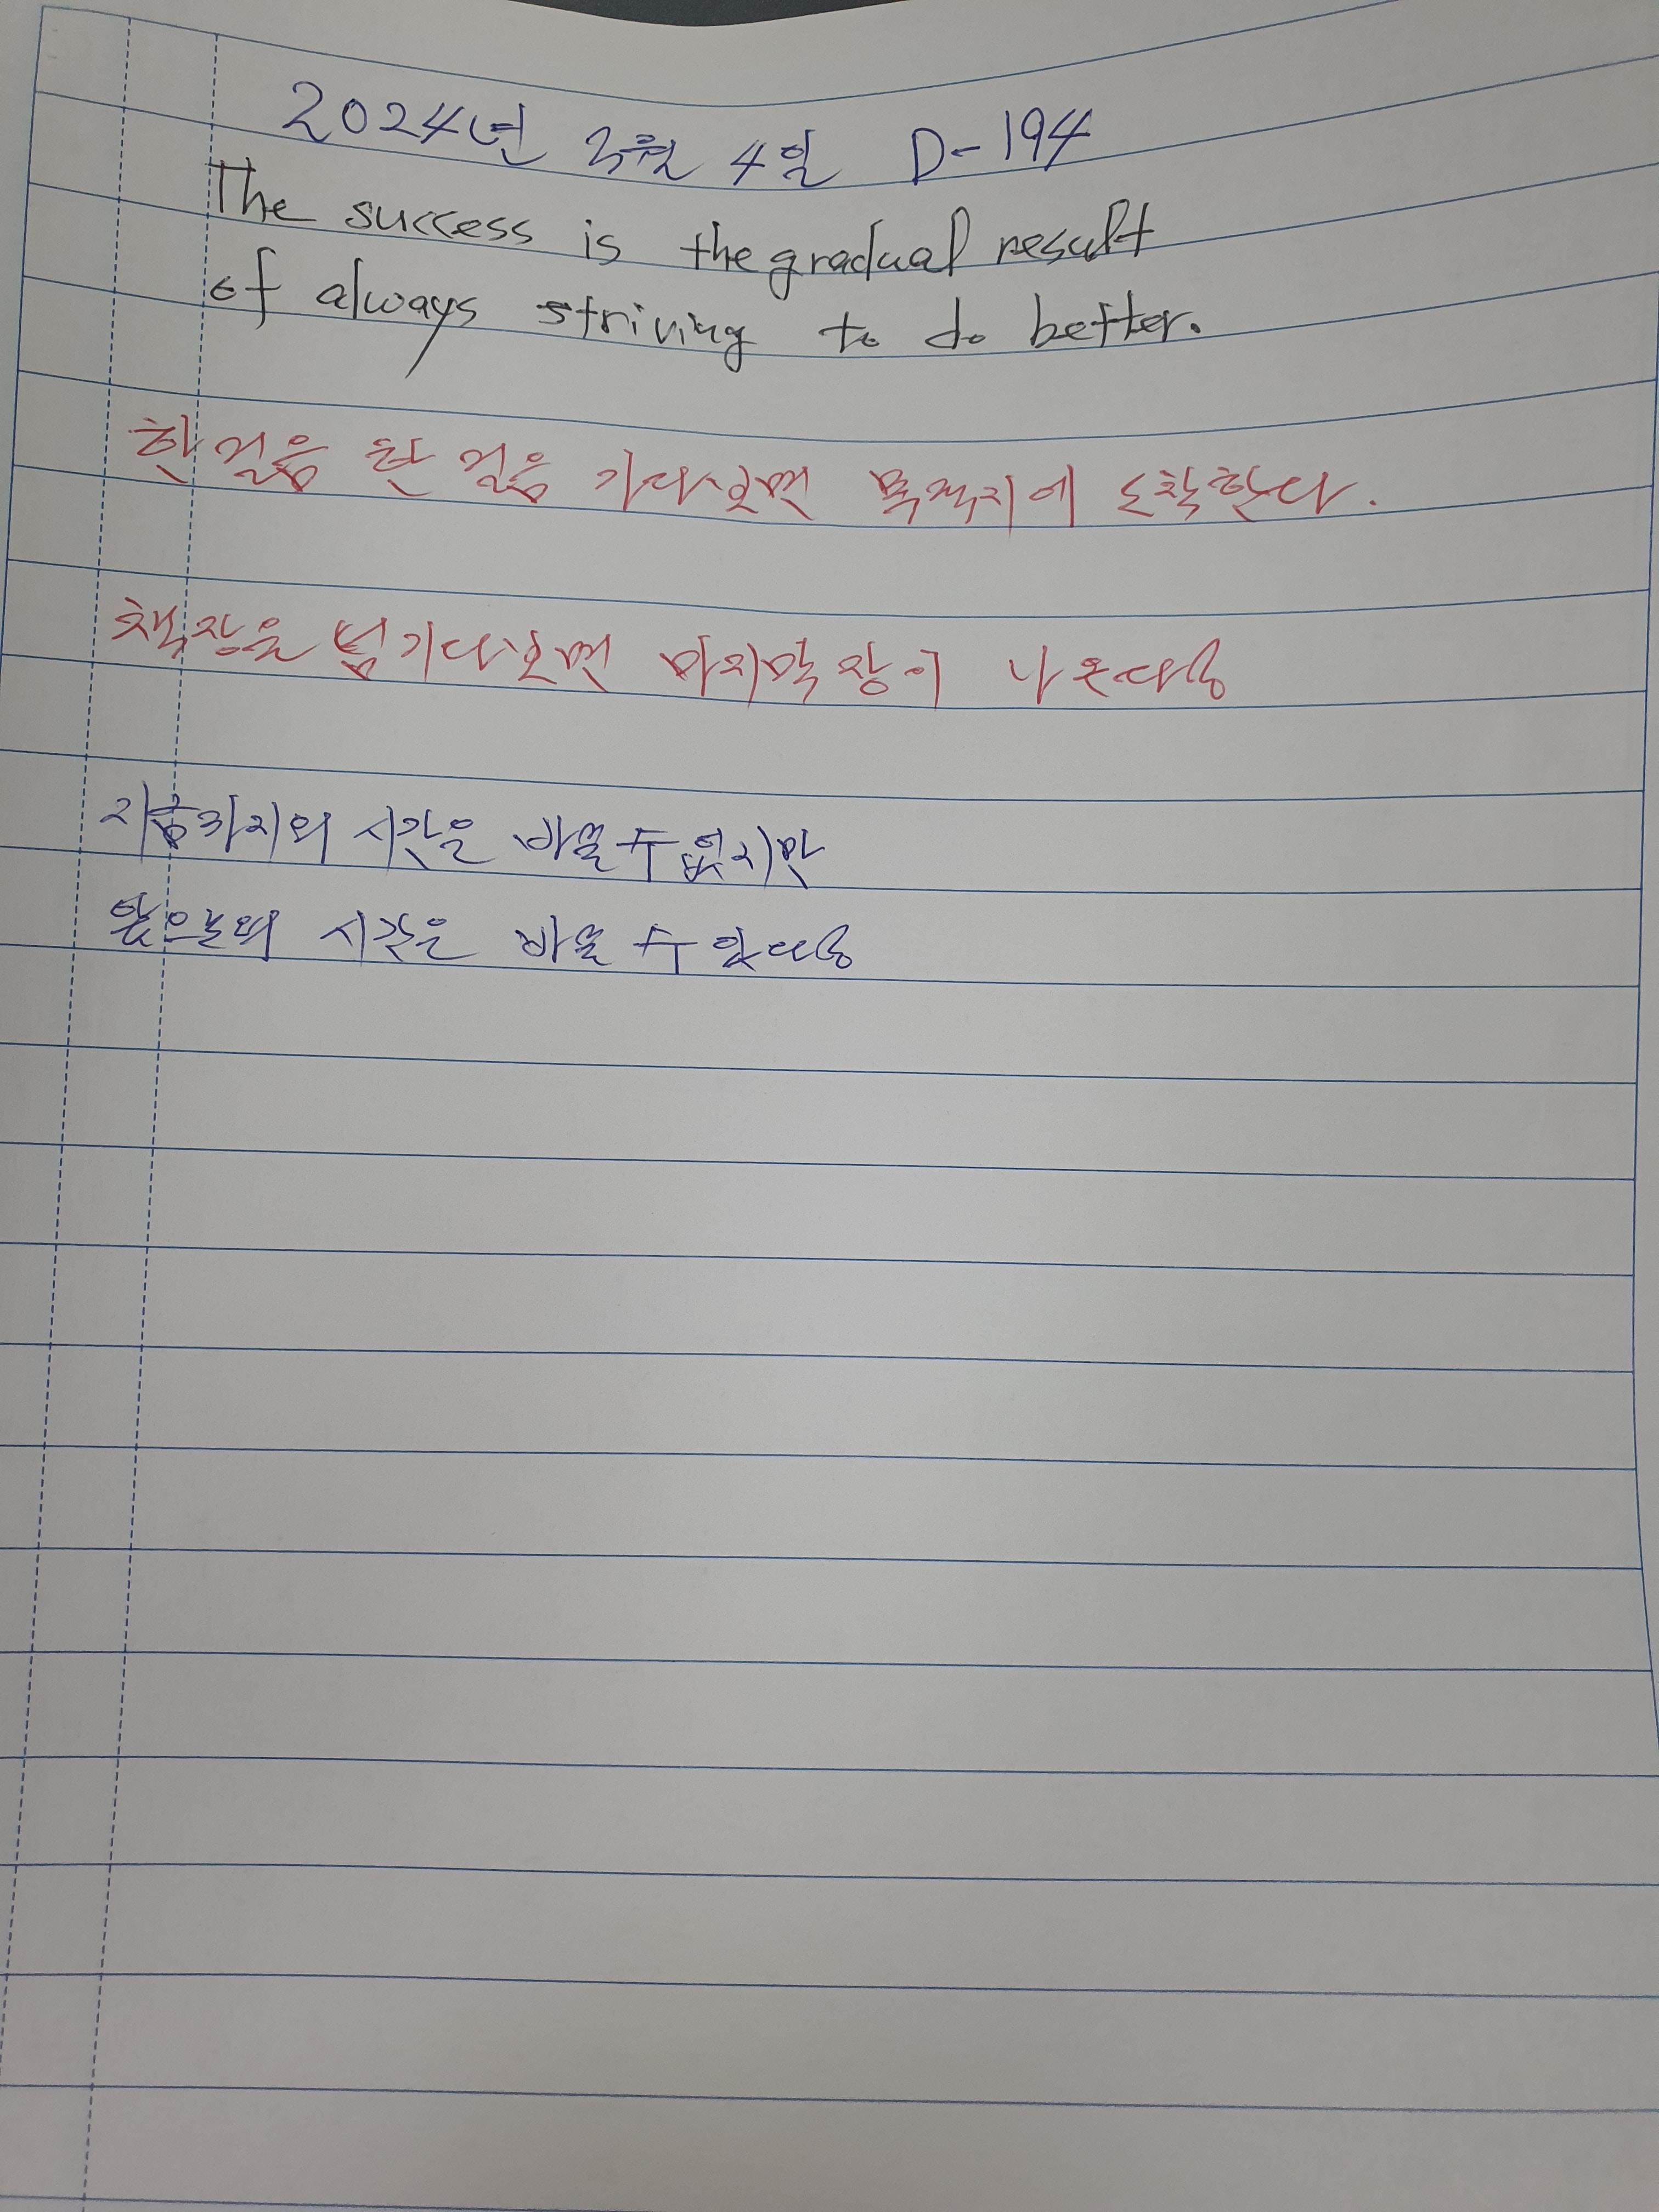 2024년 3월 4일 D-194
The success is the gradual result
of always striving to do better.
한걸음 한걸음 가다보면 목적지에 도착한다.
책장을 넘기다보면 마지막장이 나온다.
지금까지의 시간은 바꿀 수 없지만
앞으로의 시간은 바꿀 수 있다.